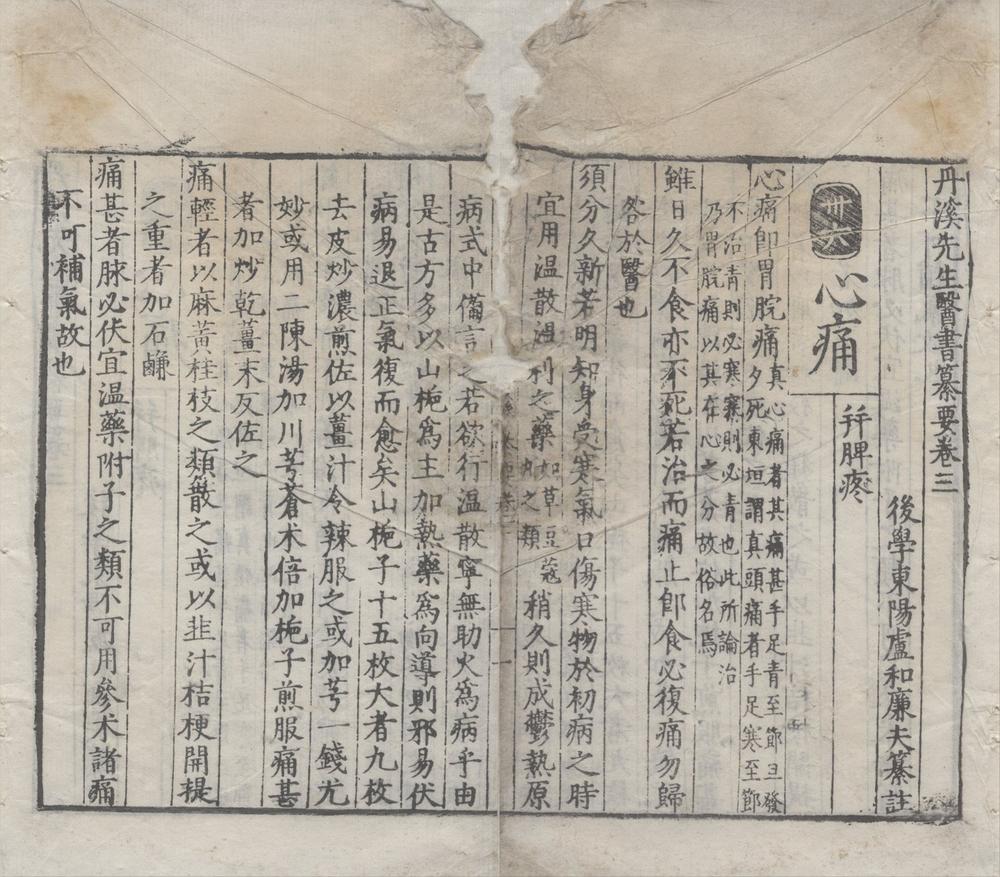 丹溪先生醫書纂要卷三
後學東陽盧和廉夫纂註
卅六 心痛 并脾疼
心痛卽胃脘痛真心痛者其痛甚手足青至節旦發
夕死東垣謂真頭痛者手足寒至節
不治青則必寒寒則必青也此所論治
乃胃脘痛以其在心之分故俗名焉
雖日久不食亦不死若治而痛止卽食必復痛勿歸
咎於醫也
須分久新若明知身受寒氣口傷寒物於初病之時
宜用温散温利之藥如草豆蔻
丸之類稍久則成鬱熱原
病式中備言之若欲行温散寧無助火爲病乎由
是古方多以山梔爲主加熱藥爲向導則邪易伏
病易退正氣復而愈矣山梔子十五枚大者九枚
去皮炒濃煎佐以薑汁令辣服之或加芎一錢尤
妙或用二陳湯加川芎蒼朮倍加梔子煎服痛甚
者加炒乾薑末反佐之
痛輕者以麻黃桂枝之類散之或以韭汁桔梗開提
之重者加石鹻
痛甚者脉必伏宜温藥附子之類不可用參朮諸痛
不可補氣故也